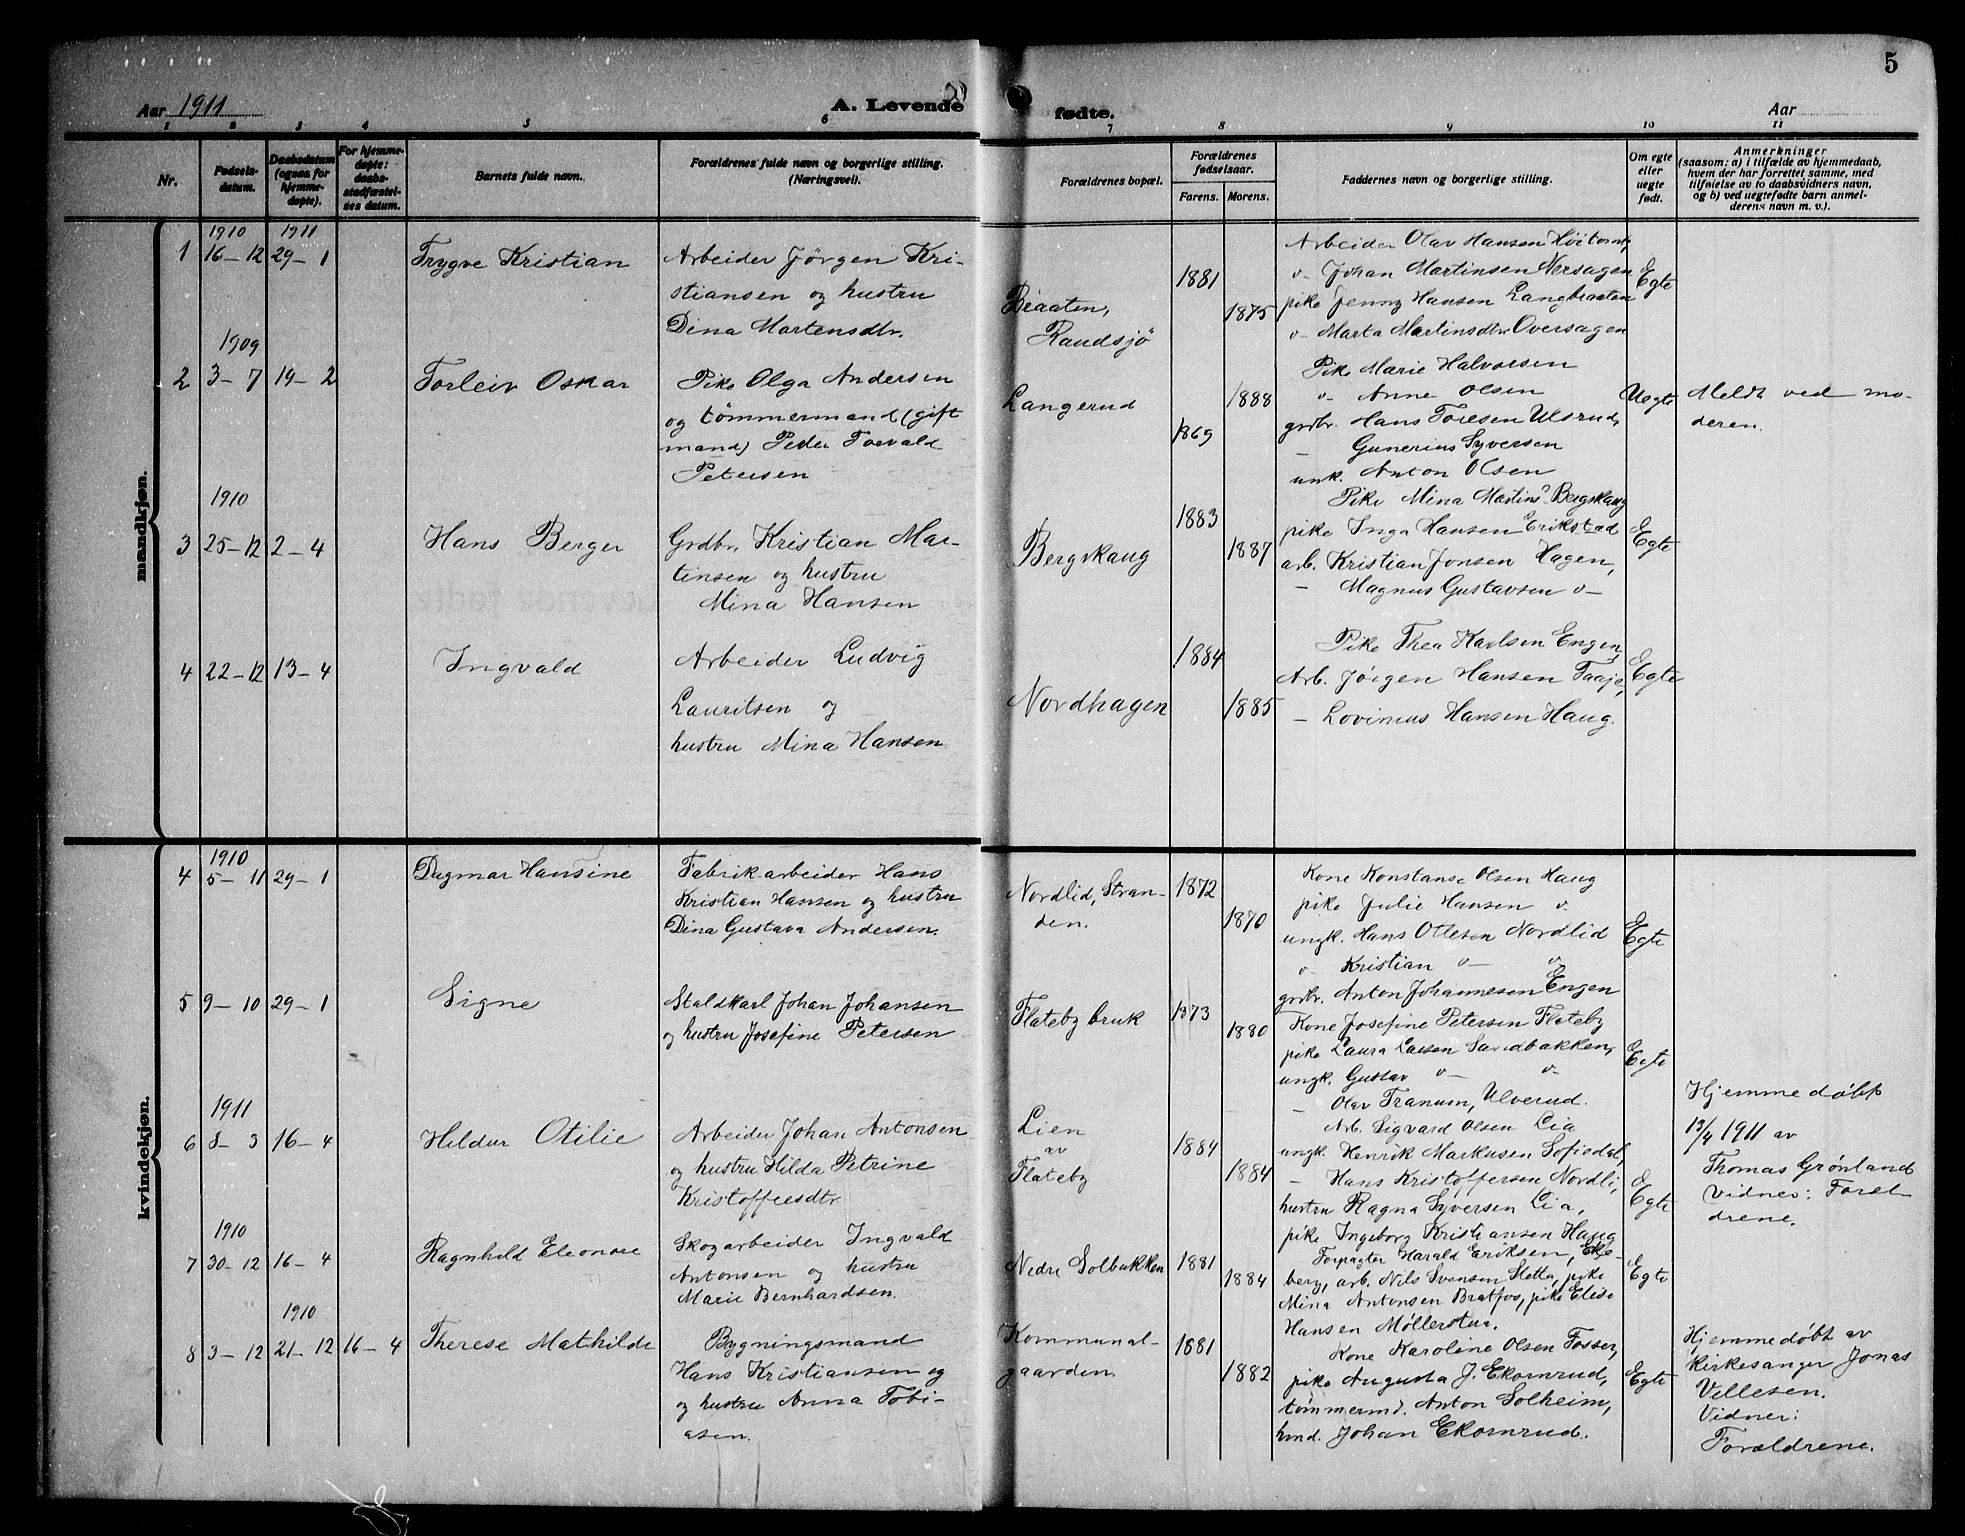 5
Aar 1911
A. Levende
fødte.
Aar
1 2 3 4 5 6 7 8 9 10 11
Nr.
Fødsels-
datum.
Daabsdatum
(ogsaa for
hjemme-
døpte).
For hjemme-
døpte:
daabs-
stadfæstel-
ses datum.
Barnets fulde navn.
Forældrenes fulde navn og borgerlige stilling.
(Næringsvei).
Forældrenes bopæl.
Forældrenes
fødselsaar.
Farens. Morens.
Faddernes navn og borgerlige stilling.
Om egte
eller
uegte
født.
Anmerkninger
(saasom: a) i tilfælde av hjemmedaab,
hvem der har forrettet samme, med
tilføielse av to daabsvidners navn,
og b) ved uegtefødte barn anmel-
derens navn m. v.).
mandkjøn.
1910 1911
1 16-12 29-1
Trygve Kristian
Arbeider Jörgen Kri-
stiansen og hustru
Dina Martensdtr.
Braaten,
Randsjö
1881
1875
Arbeider Olav Hansen Höitomt,
v- Johan Martinsen Nersagen
pike Jenny Hansen Langbraaten
v- Marta Martinsdtr Oversagen
Egte
1909
2 3-7 19-2
Torleiv Oskar
Pike Olga Andersen
og tömmermand (gift
mand) Peder Torvald
Petersen
Langerud
1888
1869
Pike Marie Halvorsen
v- Anne Olsen
grdbr. Hans Toresen Ulsrud,
- Gunerius Syversen
unk. Anton Olsen
Uegte
Meldt ved mo-
deren.
1910
3 25-12 2-4
Hans Berger
Grdbr. Kristian Mar-
tinsen og hustru
Mina Hansen
Bergskaug
1883
1887
Pike Mina Martins. Bergskaug
pike Inga Hansen Erikstad
arb. Kristian Jonsen Hagen,
- Magnus Gustavsen v-
Egte
4 22-12 13-4
Ingvald
Arbeider Ludvig
Lauritsen og
hustru Mina Hansen
Nordhagen
1884
1885
Pike Thea Karlsen Engen,
Arb. Jörgen Hansen Taaje,
- Lovinius Hansen Haug.
Egte
kvindekjøn.
1910
4 5-11 29-1
Dagmar Hansine
Fabrikarbeider Hans
Kristian Hansen og hustru
Dina Gustava Andersen.
Nordlid, Stran-
den.
1872
1870
Kone Konstanse Olsen Haug
pike Julie Hansen v.
ungk. Hans Ottesen Nordlid
v- Kristian v- v-
Egte
5 9-10 29-1
Signe
Staldkarl Johan Johansen
og hustru Josefine Petersen
Flateby bruk
1873
1880
grdbr. Anton Johannesen Engen
Kone Josefine Petersen Flateby
pike Laura Larsen Sandbakken,
ungk. Gustav v- v-
- Olav Tranum, Ulverud.
Egte
1911
6 8-3 16-4
Hildur Otilie
Arbeider Johan Antonsen
og hustru Hilda Petrine
Kristoffersdtr
Lien
av
Flateby
1884
1884
Arb. Sigvard Olsen Lia
ungk. Henrik Markusen Sofiedal,
- Hans Kristoffersen Nordli,
hustru Ragna Syversen Lia,
pike Ingeborg Kristiansen Haug
Egte
Hjemmedöbt
13/4 1911 av
Thomas Grönland
Vidner: Foræl
drene.
1910
7 30-12 16-4
Ragnhild Eleonore
Skogarbeider Ingvald
Antonsen og hustru
Marie Bernhardsen.
Nedre Solbakken
1881
1884
Forpagter Harald Eriksen, Eke-
berg, arb. Nils Svensen Sletta, pike
Mina Antonsen Bratfos, pike Elise
Hansen Möllerstua.
Egte
1910
8 3-12 21-12 16-4
Therese Mathilde
Bygningsmand
Hans Kristiansen og
og hustru Anna Tobi-
asen.
Kommunal-
gaarden.
1881
1882
Kone Karoline Olsen Fosser,
pike Augusta J. Ekornrud,
tömmermd. Anton Solheim,
hmd. Johan Ekornrud.
Egte
Hjemmedöbt av
Kirkesanger Jonas
Vellesen.
Vidner:
Forældrene.